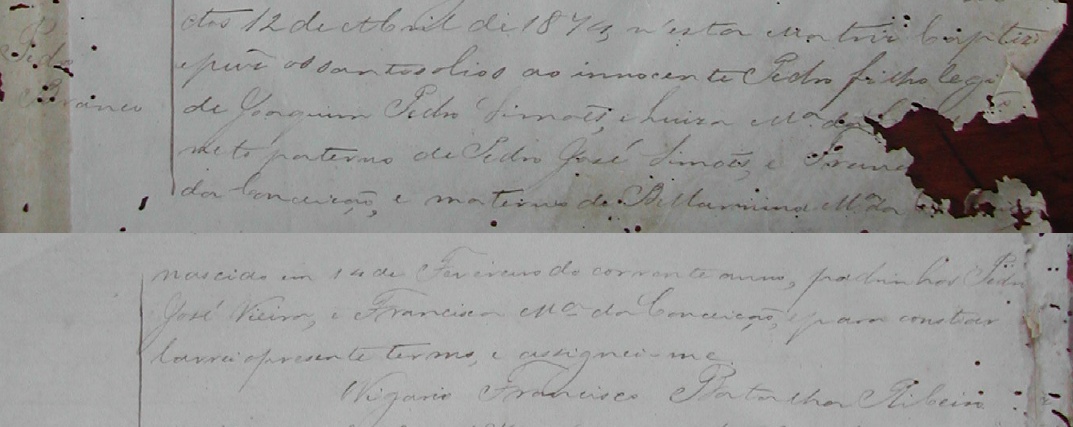 Pedro
Branco
Aos 12 de Abril de 1874, n'esta Matriz baptizei
e puz os santos olios ao innocente Pedro filho legi
de Joaquim Pedro Simoẽs, e Luiza Mª da
neto paterno de Pedro José Simoẽs, e Franc
da Conceição, e materno de Bellarmina Mª da
nascido em 14 de Fevereiro do corrente anno, padrinhos Pedro
José Vieira, e Francisca Mª da Conceição, e para constar
lavrei o presente termo, e assignei-me.
Vigario Francisco Ribeiro